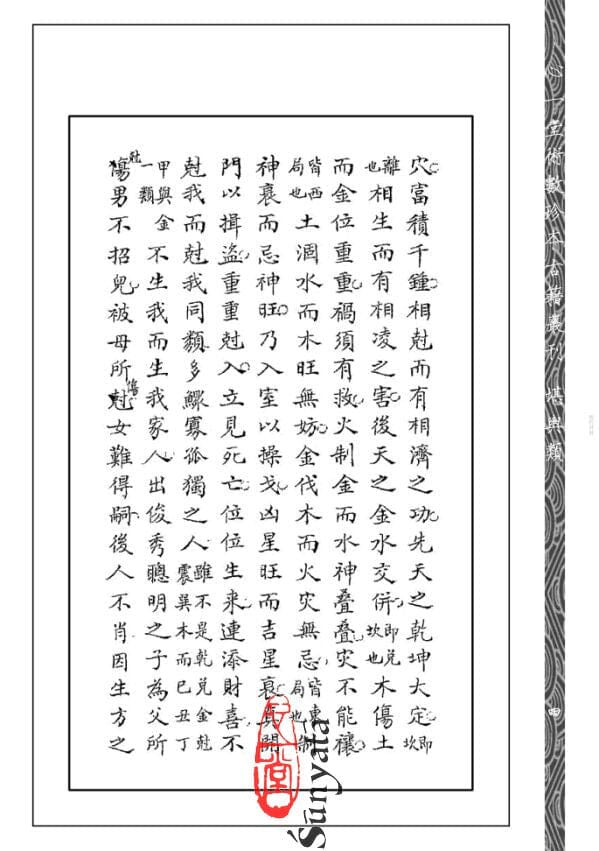 心一堂術數珍本古籍叢刊 堪輿類
四
穴富積千鍾相尅而有相濟之功先天之乾坤大定即坎
離也相生而有相凌之害後天之金水交併即兌坎也木傷土
而金位重重禍須有救火制金而水神叠叠災不能禳
皆西局也土涸水而木旺無妨金伐木而火災無忌皆東局也制
神衰而忌神旺乃入室以操戈凶星旺而吉星衰真開
門以揖盜重重尅入立見死亡位位生來連添財喜不
尅我而尅我同類多鰥寡孤獨之人雖不是乾兌金尅震巽木而已丑丁
甲與金一類不生我而生我家人出俊秀聰明之子為父所
尅傷男不招兒被母所傷尅女難得嗣後人不肖因生方之
Śūnyatā